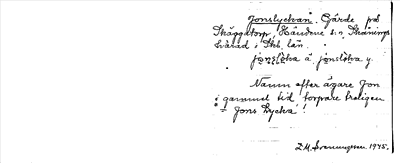 Jonslyckan. Gärde på
Skäggatorp, Händene s:n, Skånings
härad i Skb. län.
jonsløka å jonsløka y.
Namn efter ägare Jon
i gammal tid, torpare troligen
= Jons lycka!
D.M. Svenungsson. 1945.